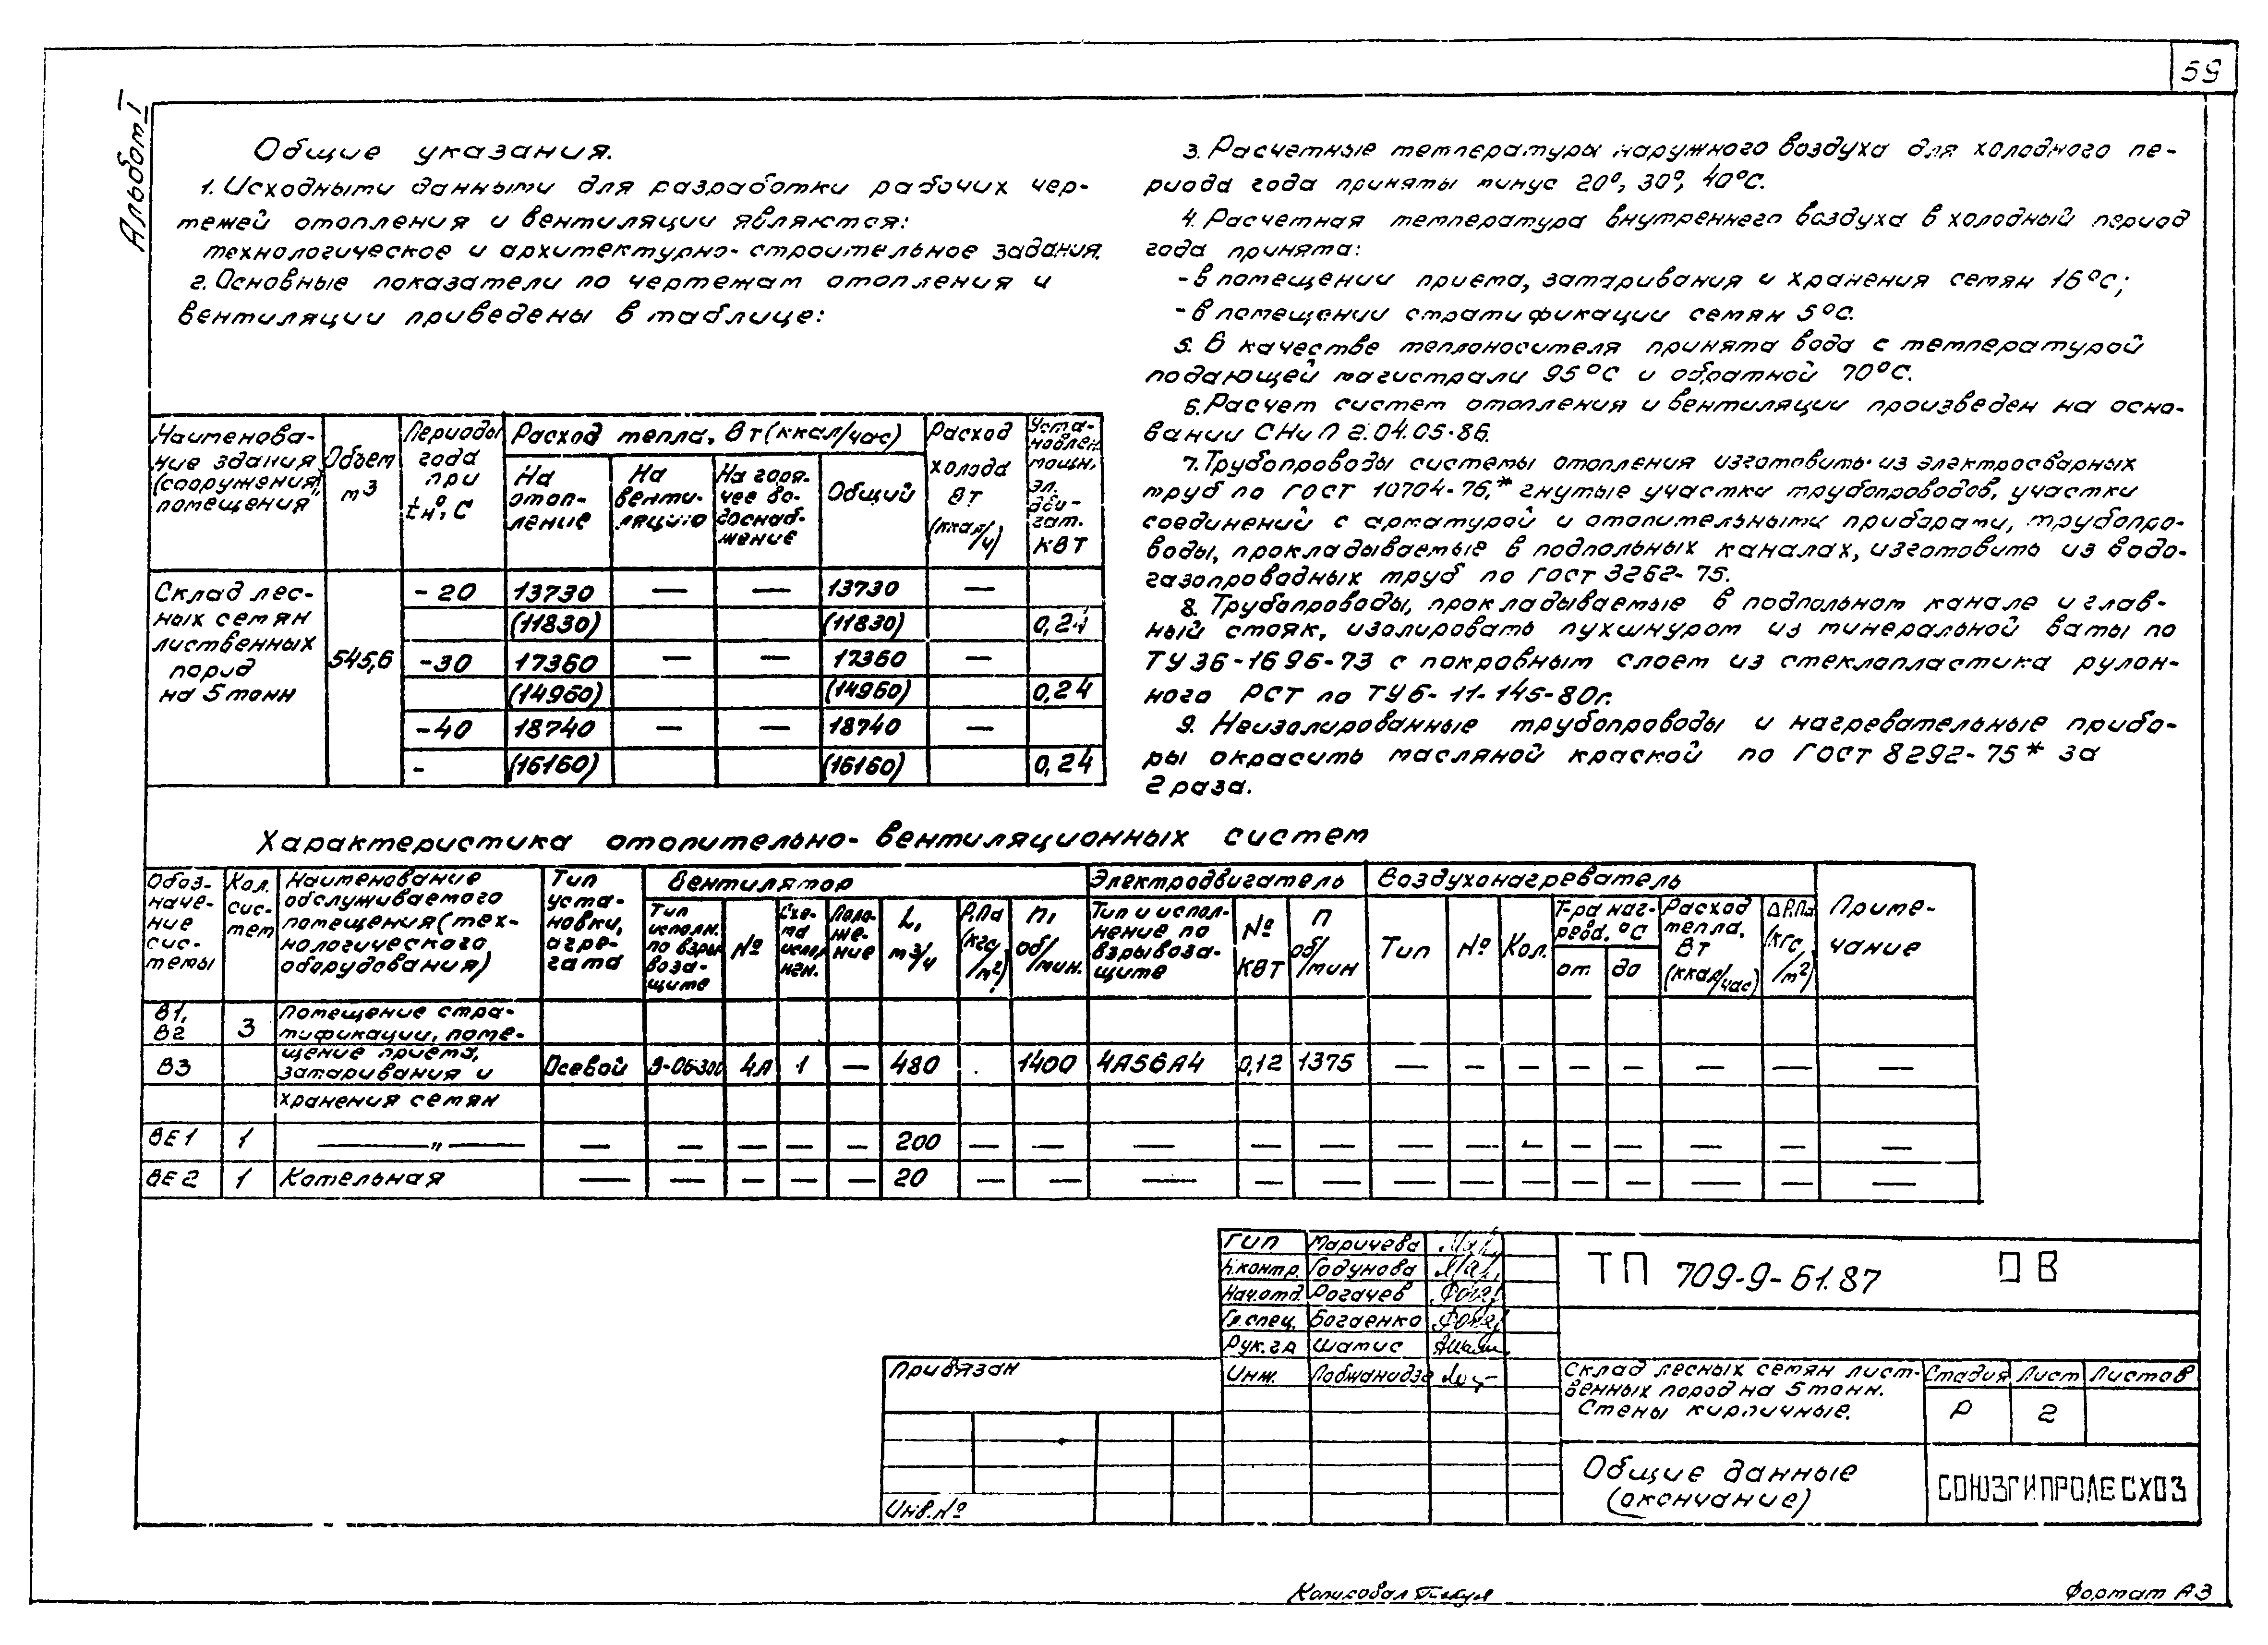 59
Альбом I
Общие указания.
1. Исходными данными для разработки рабочих чер-
тежей отопления и вентиляции являются:
технологическое и архитектурно-строительное задания.
2. Основные показатели по чертежам отопления и
вентиляции приведены в таблице:
Наименова-
ние здания
(сооружения),
помещения
Объем
м3
Периоды
года
при
tн,°С
Расход тепла, Вт (ккал/час)
На
отоп-
ление
На
венти-
ляцию
На горя-
чее во-
доснаб-
жение
Общий
Расход
холода
Вт
(ккал/ч)
Уста-
новлен.
мощн.
эл.
дви-
гат.
кВт
Склад лес-
ных семян
лиственных
пород
на 5 тонн
545,6
-20 13730 — — 13730 —
(11830) (11830) 0,24
-30 17360 — — 17360 —
(14960) (14960) 0,24
-40 18740 — — 18740 —
- (16160) (16160) 0,24
3. Расчетные температуры наружного воздуха для холодного пе-
риода года приняты минус 20°, 30°, 40°С.
4. Расчетная температура внутреннего воздуха в холодный период
года принята:
- в помещении приема, затаривания и хранения семян 16°С;
- в помещении стратификации семян 5°С.
5. В качестве теплоносителя принята вода с температурой
подающей магистрали 95°С и обратной 70°С.
6. Расчет систем отопления и вентиляции произведен на осно-
вании СНиП 2.04.05-86.
7. Трубопроводы системы отопления изготовить из электросварных
труб по ГОСТ 10704-76,* гнутые участки трубопроводов, участки
соединений с арматурой и отопительными приборами, трубопро-
воды, прокладываемые в подпольных каналах, изготовить из водо-
газопроводных труб по ГОСТ 3262-75.
8. Трубопроводы, прокладываемые в подпольном канале и глав-
ный стояк, изолировать пухшнуром из минеральной ваты по
ТУ 36-1695-73 с покровным слоем из стеклопластика рулон-
ного РСТ по ТУ6-11-145-80г.
9. Неизолированные трубопроводы и нагревательные прибо-
ры окрасить масляной краской по ГОСТ 8292-75* за
2 раза.
Характеристика отопительно-вентиляционных систем
Обоз-
наче-
ние
сис-
темы
Кол.
сис-
тем
Наименование
обслуживаемого
помещения (тех-
нологического
оборудования)
Тип
уста-
новки,
агре-
гата
Вентилятор
Тип
исполн.
по взры
воза-
щите
№
Схе-
ма
испол
нен.
Поло-
же-
ние
L,
м3/ч
Р, Па
(кгс
/м2)
п,
об/
мин.
Электродвигатель
Тип и испол-
нение по
взрывоза-
щите
№
кВт
п
об/
мин
Воздухонагреватель
Тип
№
Кол.
Т-ра наг-
рева, °С
от
до
Расход
тепла,
Вт
(ккал/час)
ΔР, Па
(кгс
/м2)
Приме-
чание
В1,
В2 3 Помещение стра-
тификации, поме-
В3 щение приема,
затаривания и
хранения семян
Осевой В-06-300 4А 1 — 480 . 1400 4А56А4 0,12 1375 — — — — — — — —
ВЕ1 1 — „ — — — — — — 200 — — — — — — — — — — — — —
ВЕ2 1 Котельная — — — — — 20 — — — — — — — — — — — — —
ГИП Маричева
Н.контр. Годунова
Нач.отд. Рогачев
Гл.спец. Богаенко
Рук.гр Шатис
Инж. Лобжанидзе
ТП 709-9-61.87 ОВ
Привязан
Инв.№
Склад лесных семян лист-
венных пород на 5 тонн.
Стены кирпичные.
Стадия Лист Листов
Р 2
Общие данные
(окончание)
СОЮЗГИПРОЛЕСХОЗ
Копировал
Формат А3